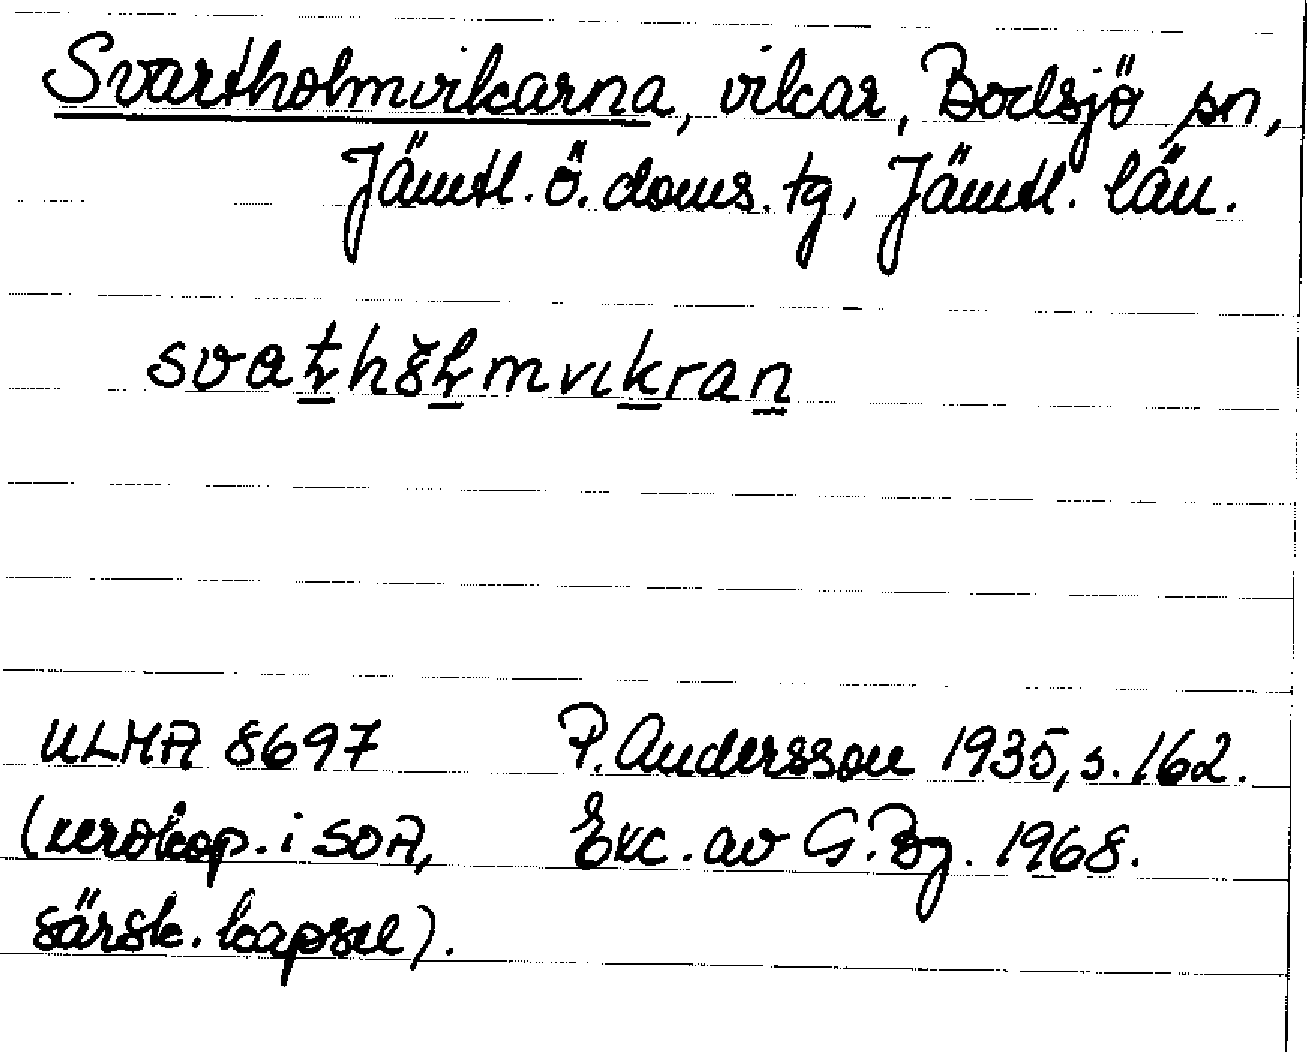 Svartholmvikarna, vikar, Bodsjö sn,
Jämtl. ö. doms. tg, Jämtl. län.
ULMA 8697 P. Andersson 1935, s. 162.
(xerokop. i SOA, Exc. av G. Bg. 1968.
särsk. kapsel).